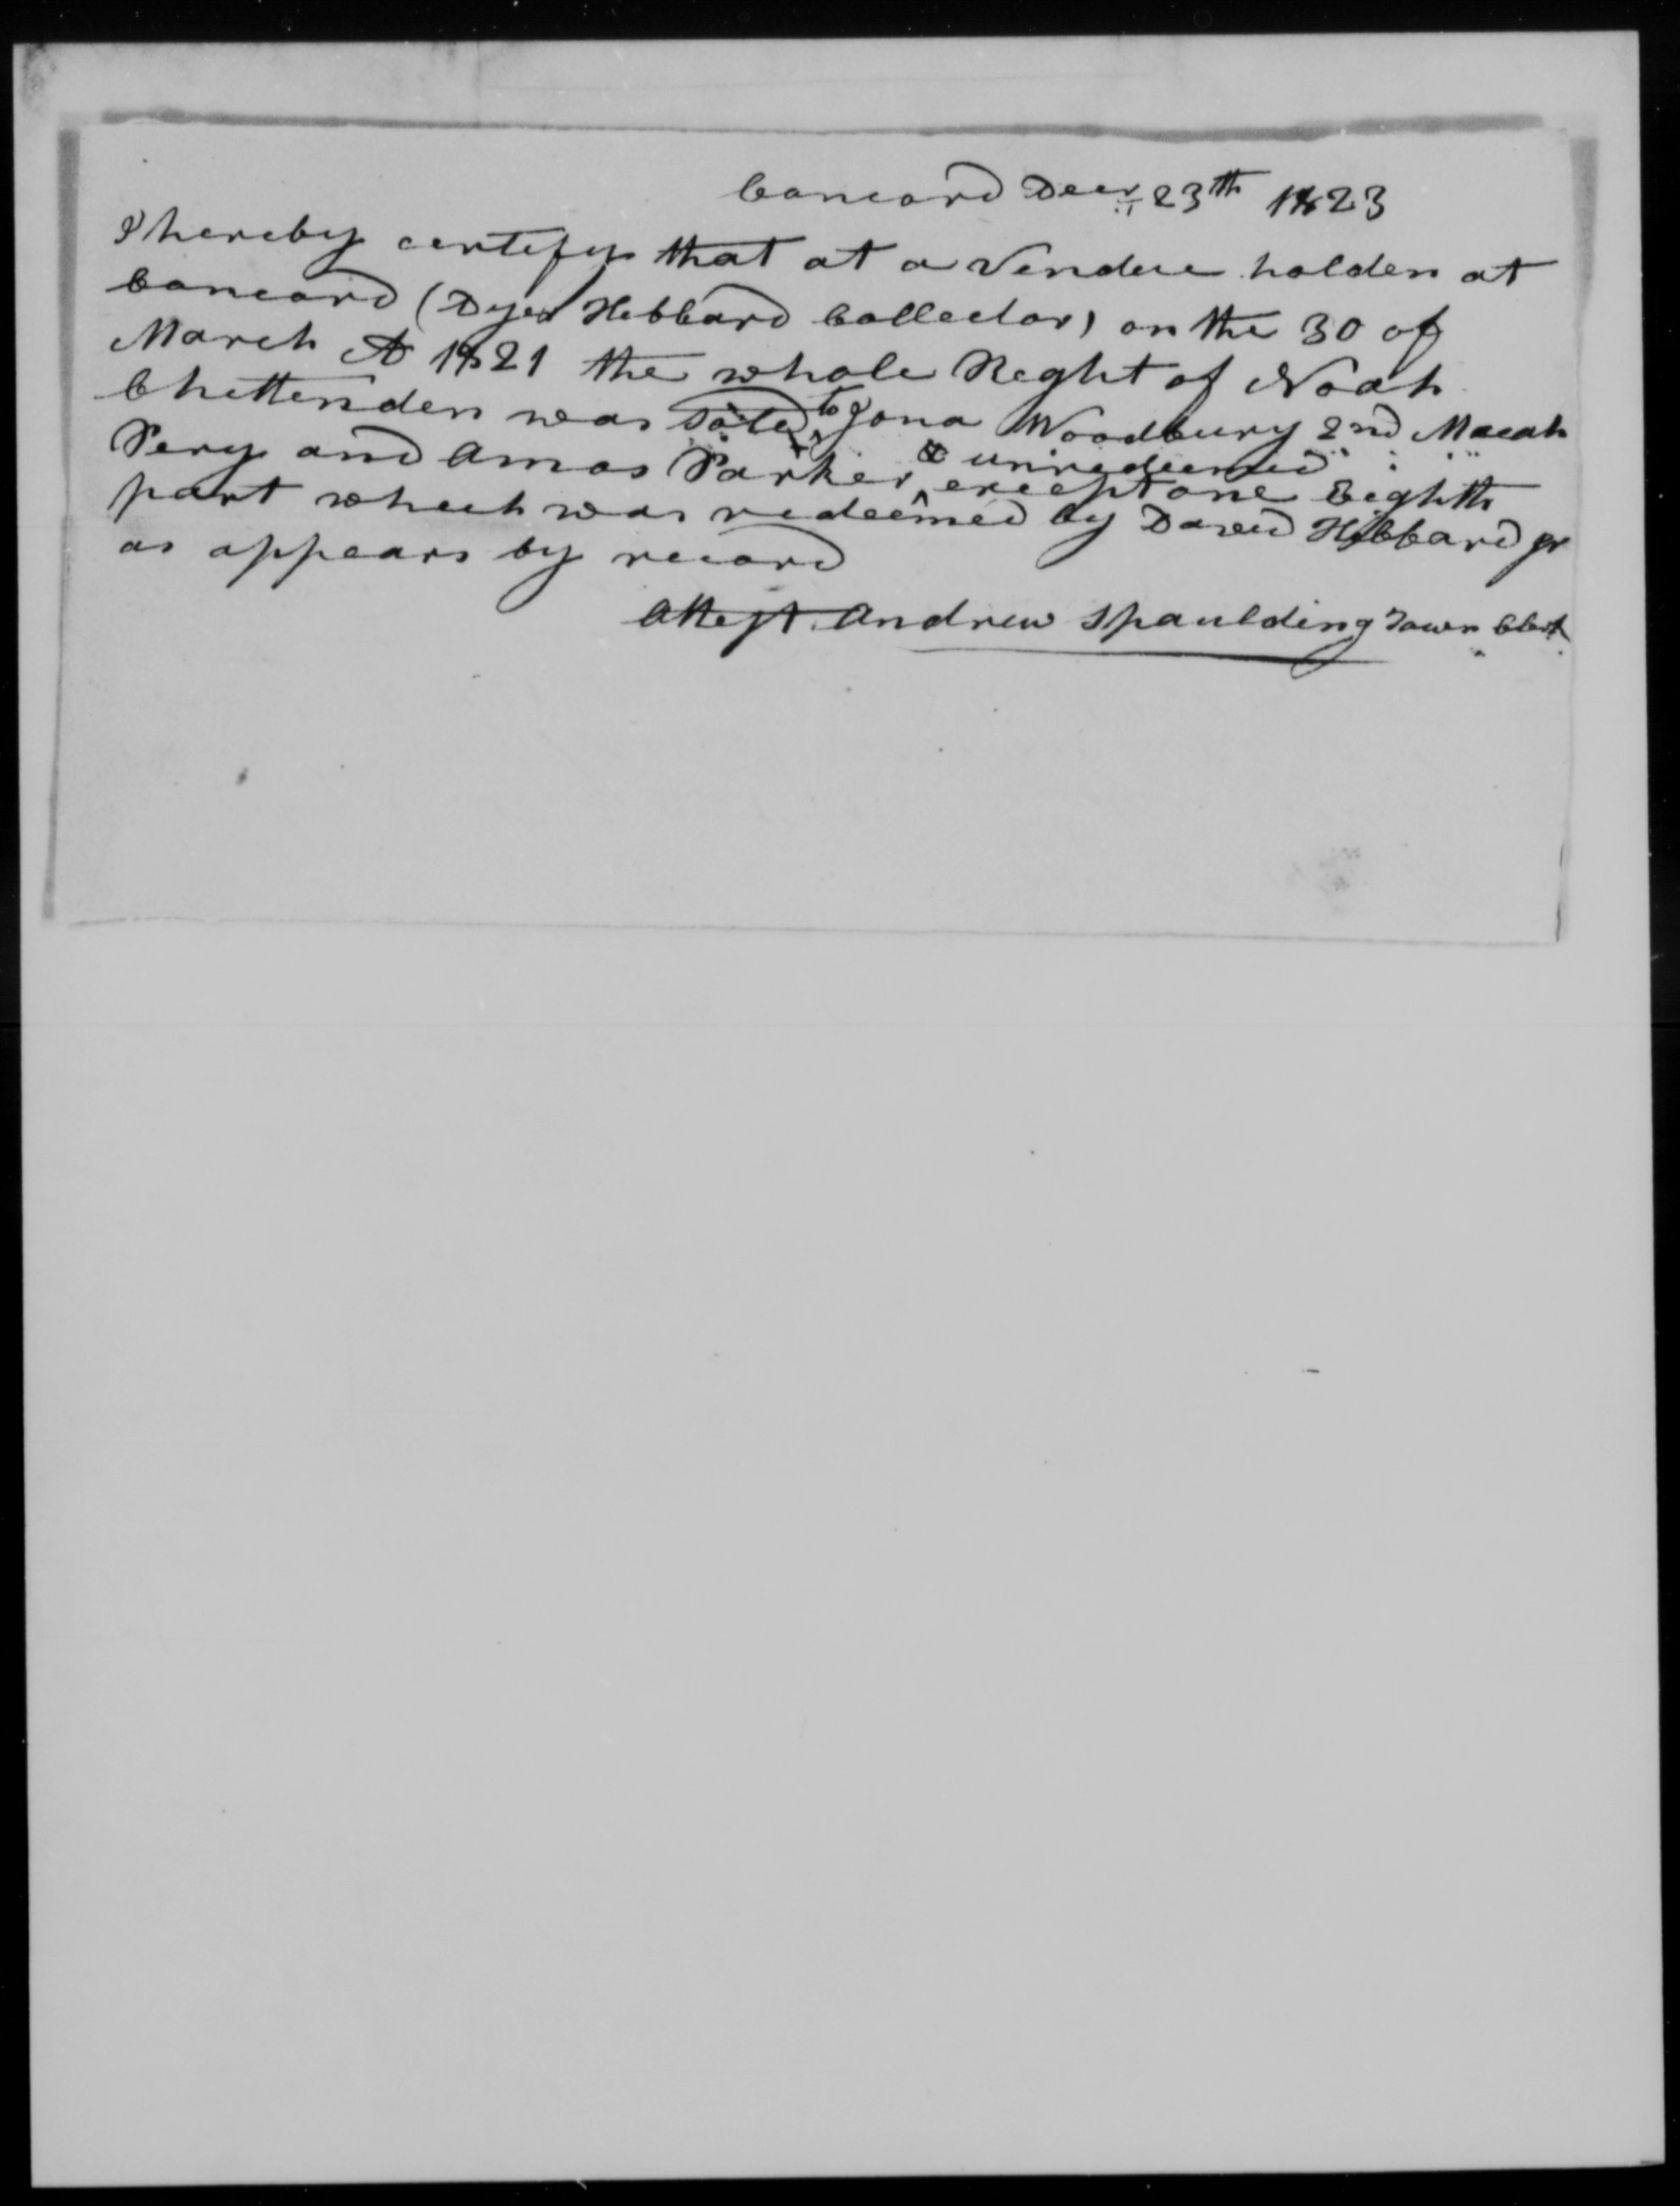 Concord Decr 23th 1823
I hereby certify that at a Vendue holden at
Concord (Dyer Hebbard Collector) on the 30 of
March A 1821 the whole Reght of Noah
Chettenden was sold to Jona Woodbury 2nd Macah
Pery and Amos Parker & unredeemed except one Eighth
part which was redeemed by David Hibbard jr
as appears by record
Attest. Andrew Spaulding Town Clerk